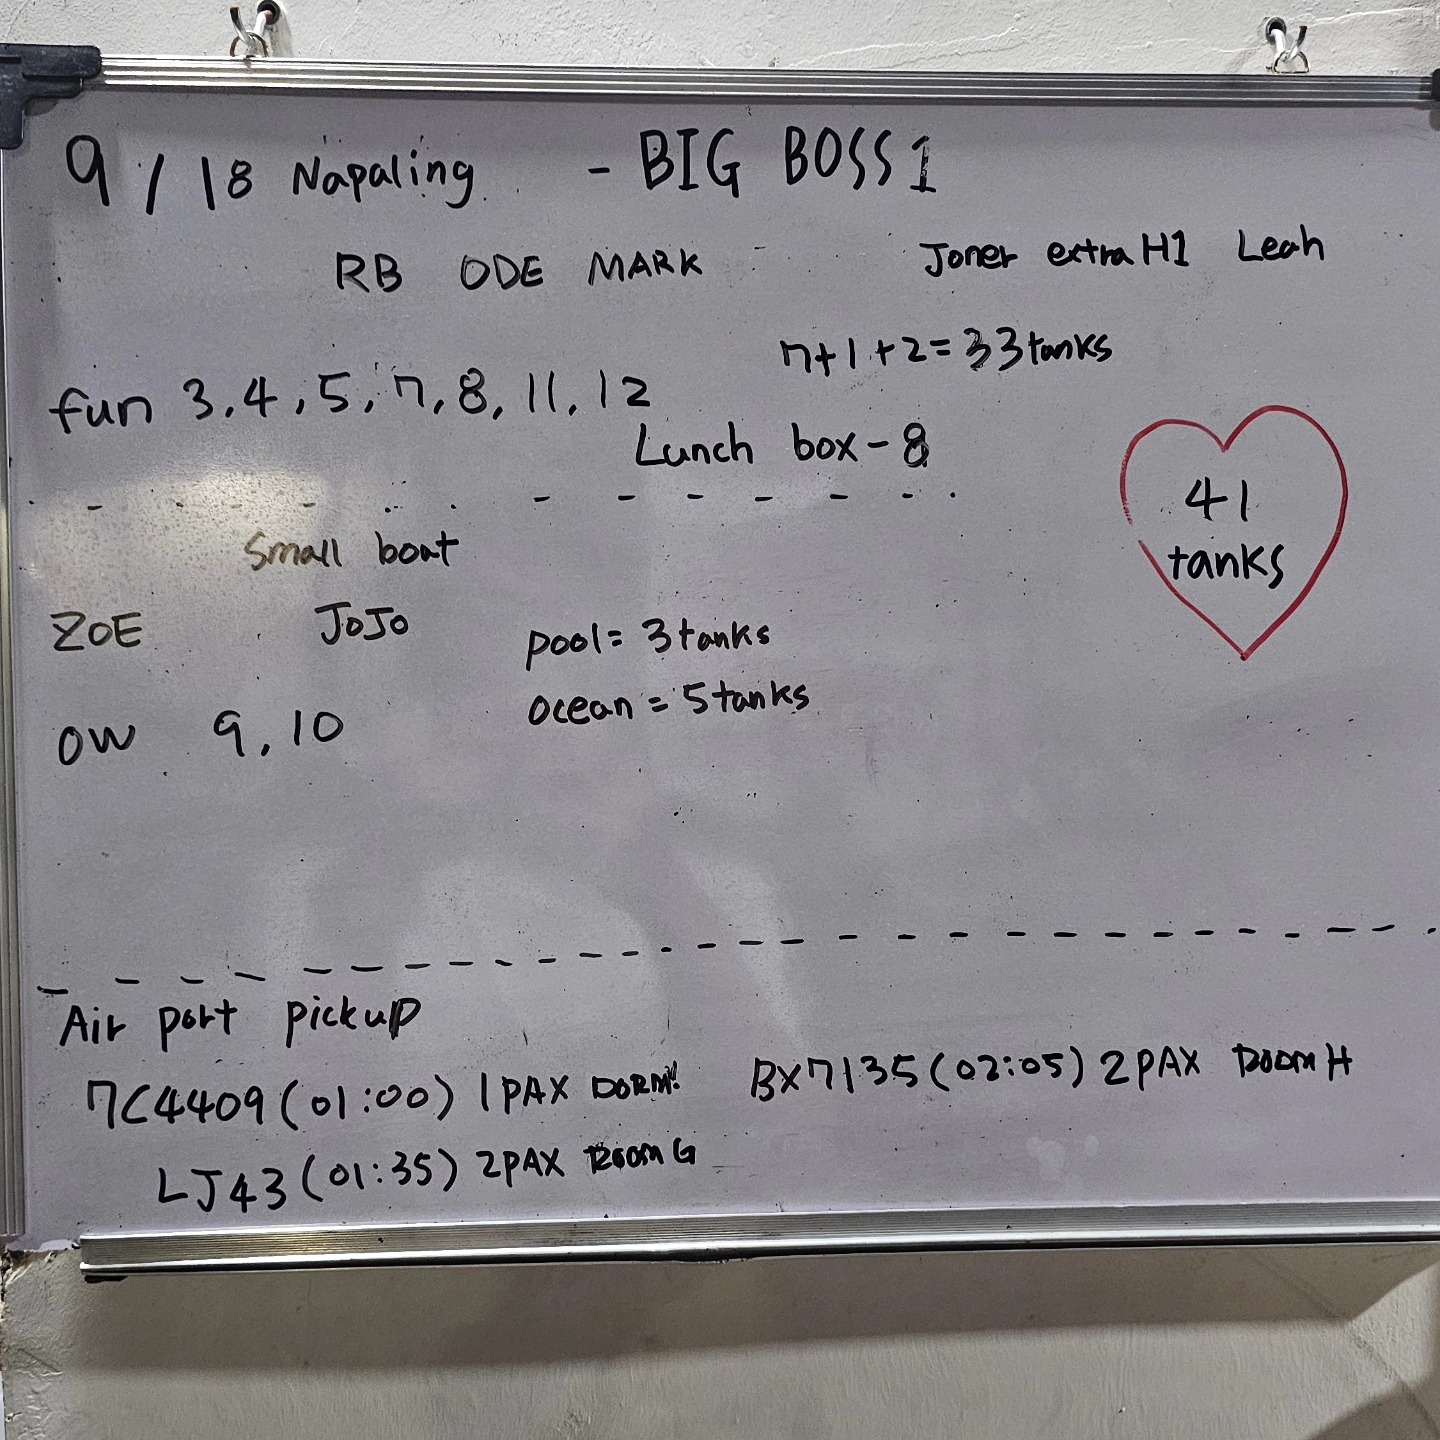 9/18 Napaling - BIG BOSS 1
RB ODE MARK Joner extra H1 Leah
7+1+2=33tanks
fun 3,4,5,7,8,11,12
Lunch box-8
41
tanks
Small boat
ZOE JOJO
pool= 3tanks
ocean = 5tanks
OW 9,10
Air port pickup
7C4409(01:00) 1PAX DORM!
BX7135(02:05) 2PAX ROOM H
LJ43(01:35) 2PAX ROOM G